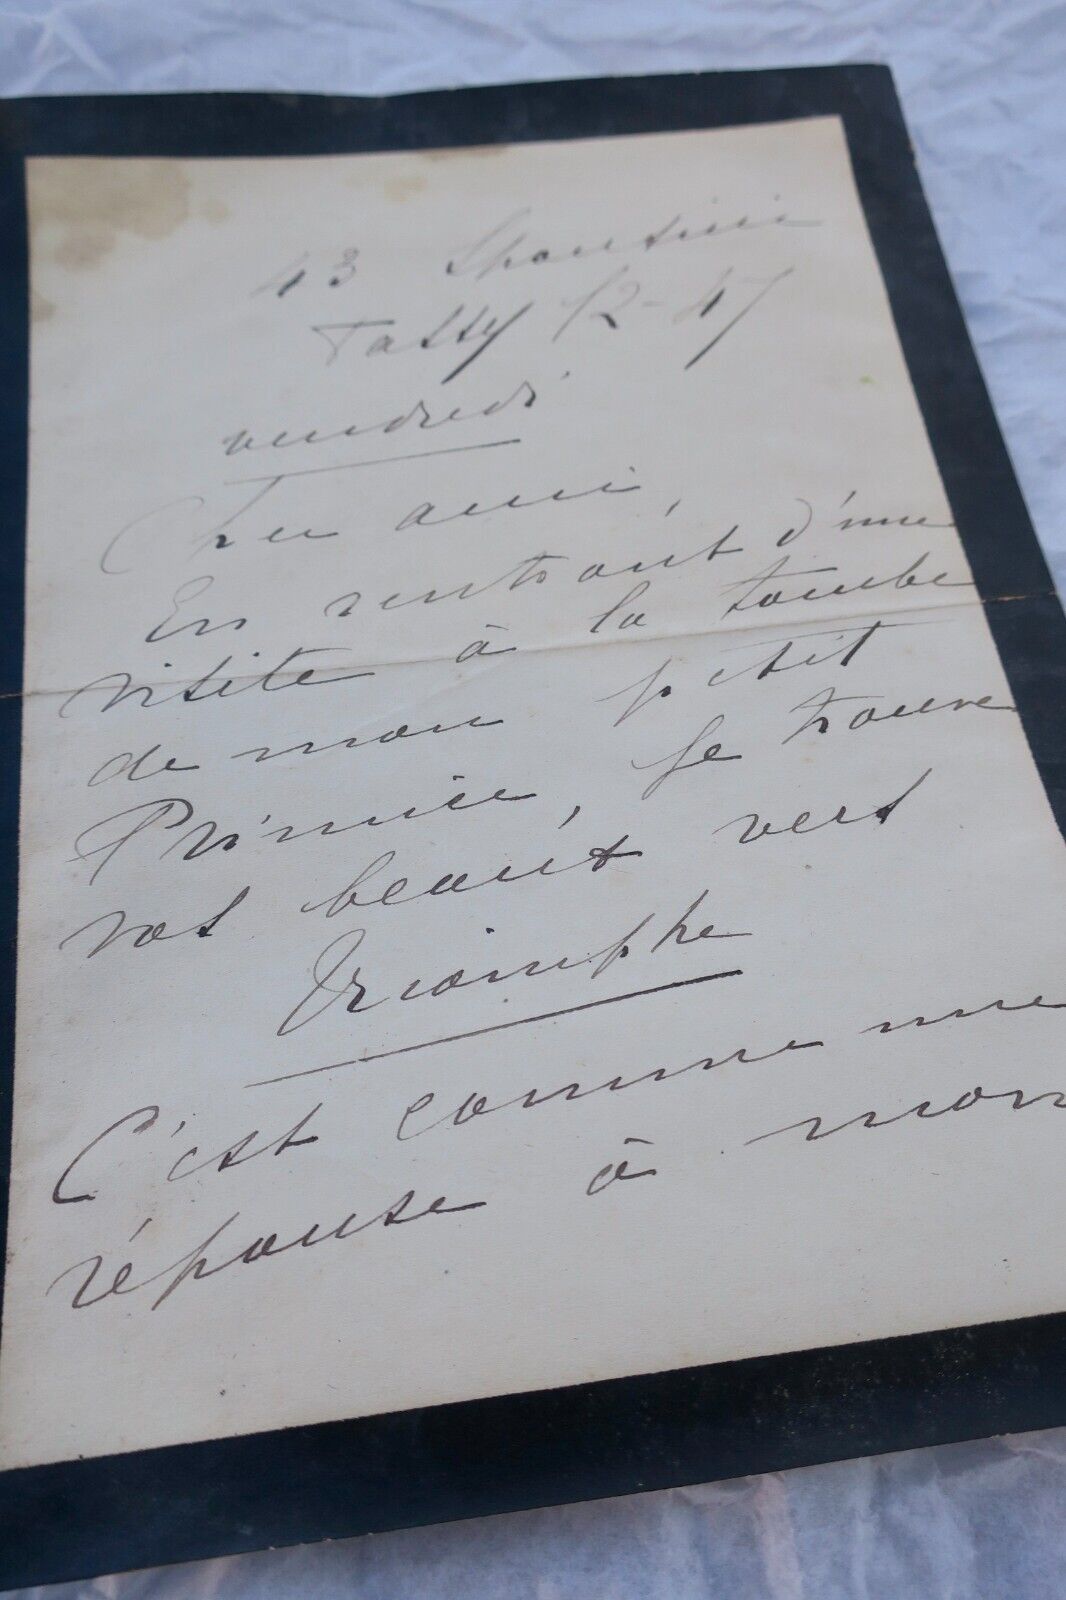 43 Spontini
Passy 12-47
vendredi
Cher ami,
En rentrant d'une
visite à la tombe
de mon petit
Prince, je trouve
vos beaux vers
Triomphe
C'est comme une
réponse à mon